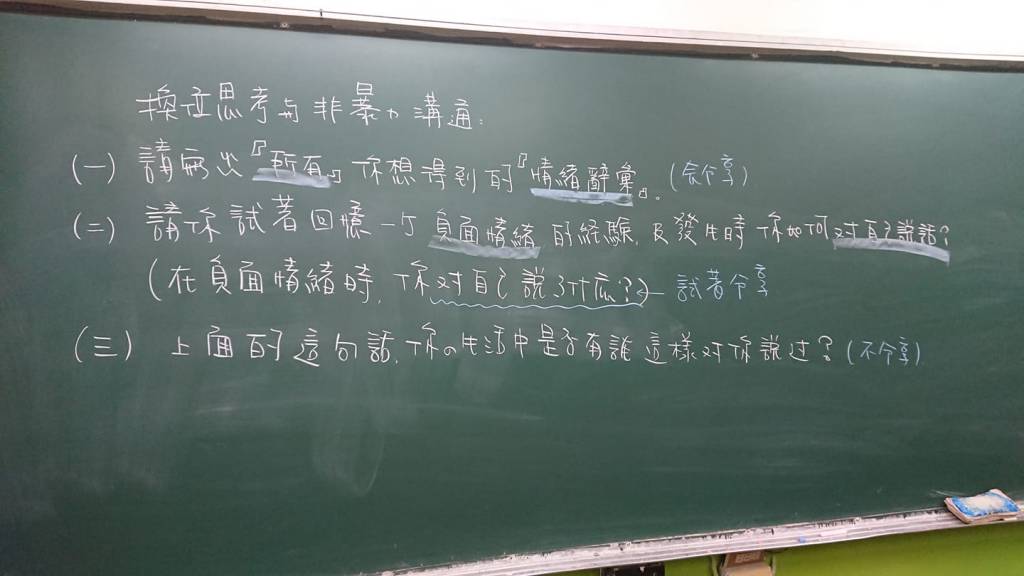 換位思考与非暴力溝通:
(一) 請寫出『所有』你想得到的『情緒辭彙』。(會分享)
(二) 請你試著回憶一个負面情緒的經驗,及發生時你如何对自己說話?
(在負面情緒時,你对自己說了什麼?) 試著分享
(三) 上面的這句話,你の生活中是否有誰這樣对你說过?(不分享)